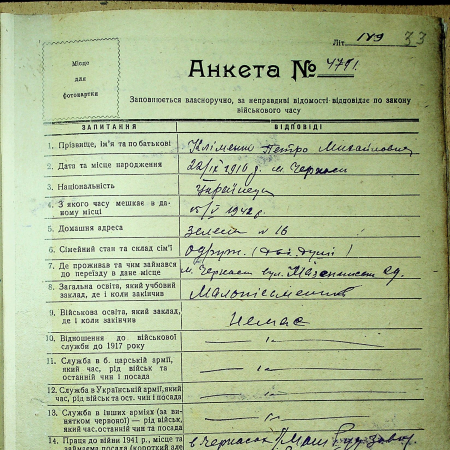 Літ. 189 33
Місце
для
фотокартки
Анкета № 4791.
Заповнюється власноручно, за неправдиві відомості відповідає по закону
військового часу
ЗАПИТАННЯ ВІДПОВІДІ
1. Прізвище, ім'я та по батькові Кліменко Петро Михайлович
2. Дата та місце народження 22/IX 1910 р. м. Черкаси
3. Національність Українець
4. З якого часу мешкає в да-
ному місці 15/V 1942 р.
5. Домашня адреса № 16
6. Сімейний стан та склад сім'ї одруж. (дві душі)
7. Де проживав та чим займався
до переїзду в дане місце м. Черкаси вул.
8. Загальна освіта, який учбовий
заклад, де і коли закінчив Малописьменний
9. Військова освіта, який заклад,
де і коли закінчив Немає
10. Відношення до військової
служби до 1917 року
11. Служба в б. царській армії,
який час, рід військ та
останній чин і посада
12. Служба в Українській армії, який
час, рід військ та ост. чин і посад.
13. Служба в інших арміях (за ви-
нятком червоної) — рід військ,
який час, останній чин та посада
14. Праця до війни 1941 р., місце та
займаєма посада (короткий опис в Черкасах